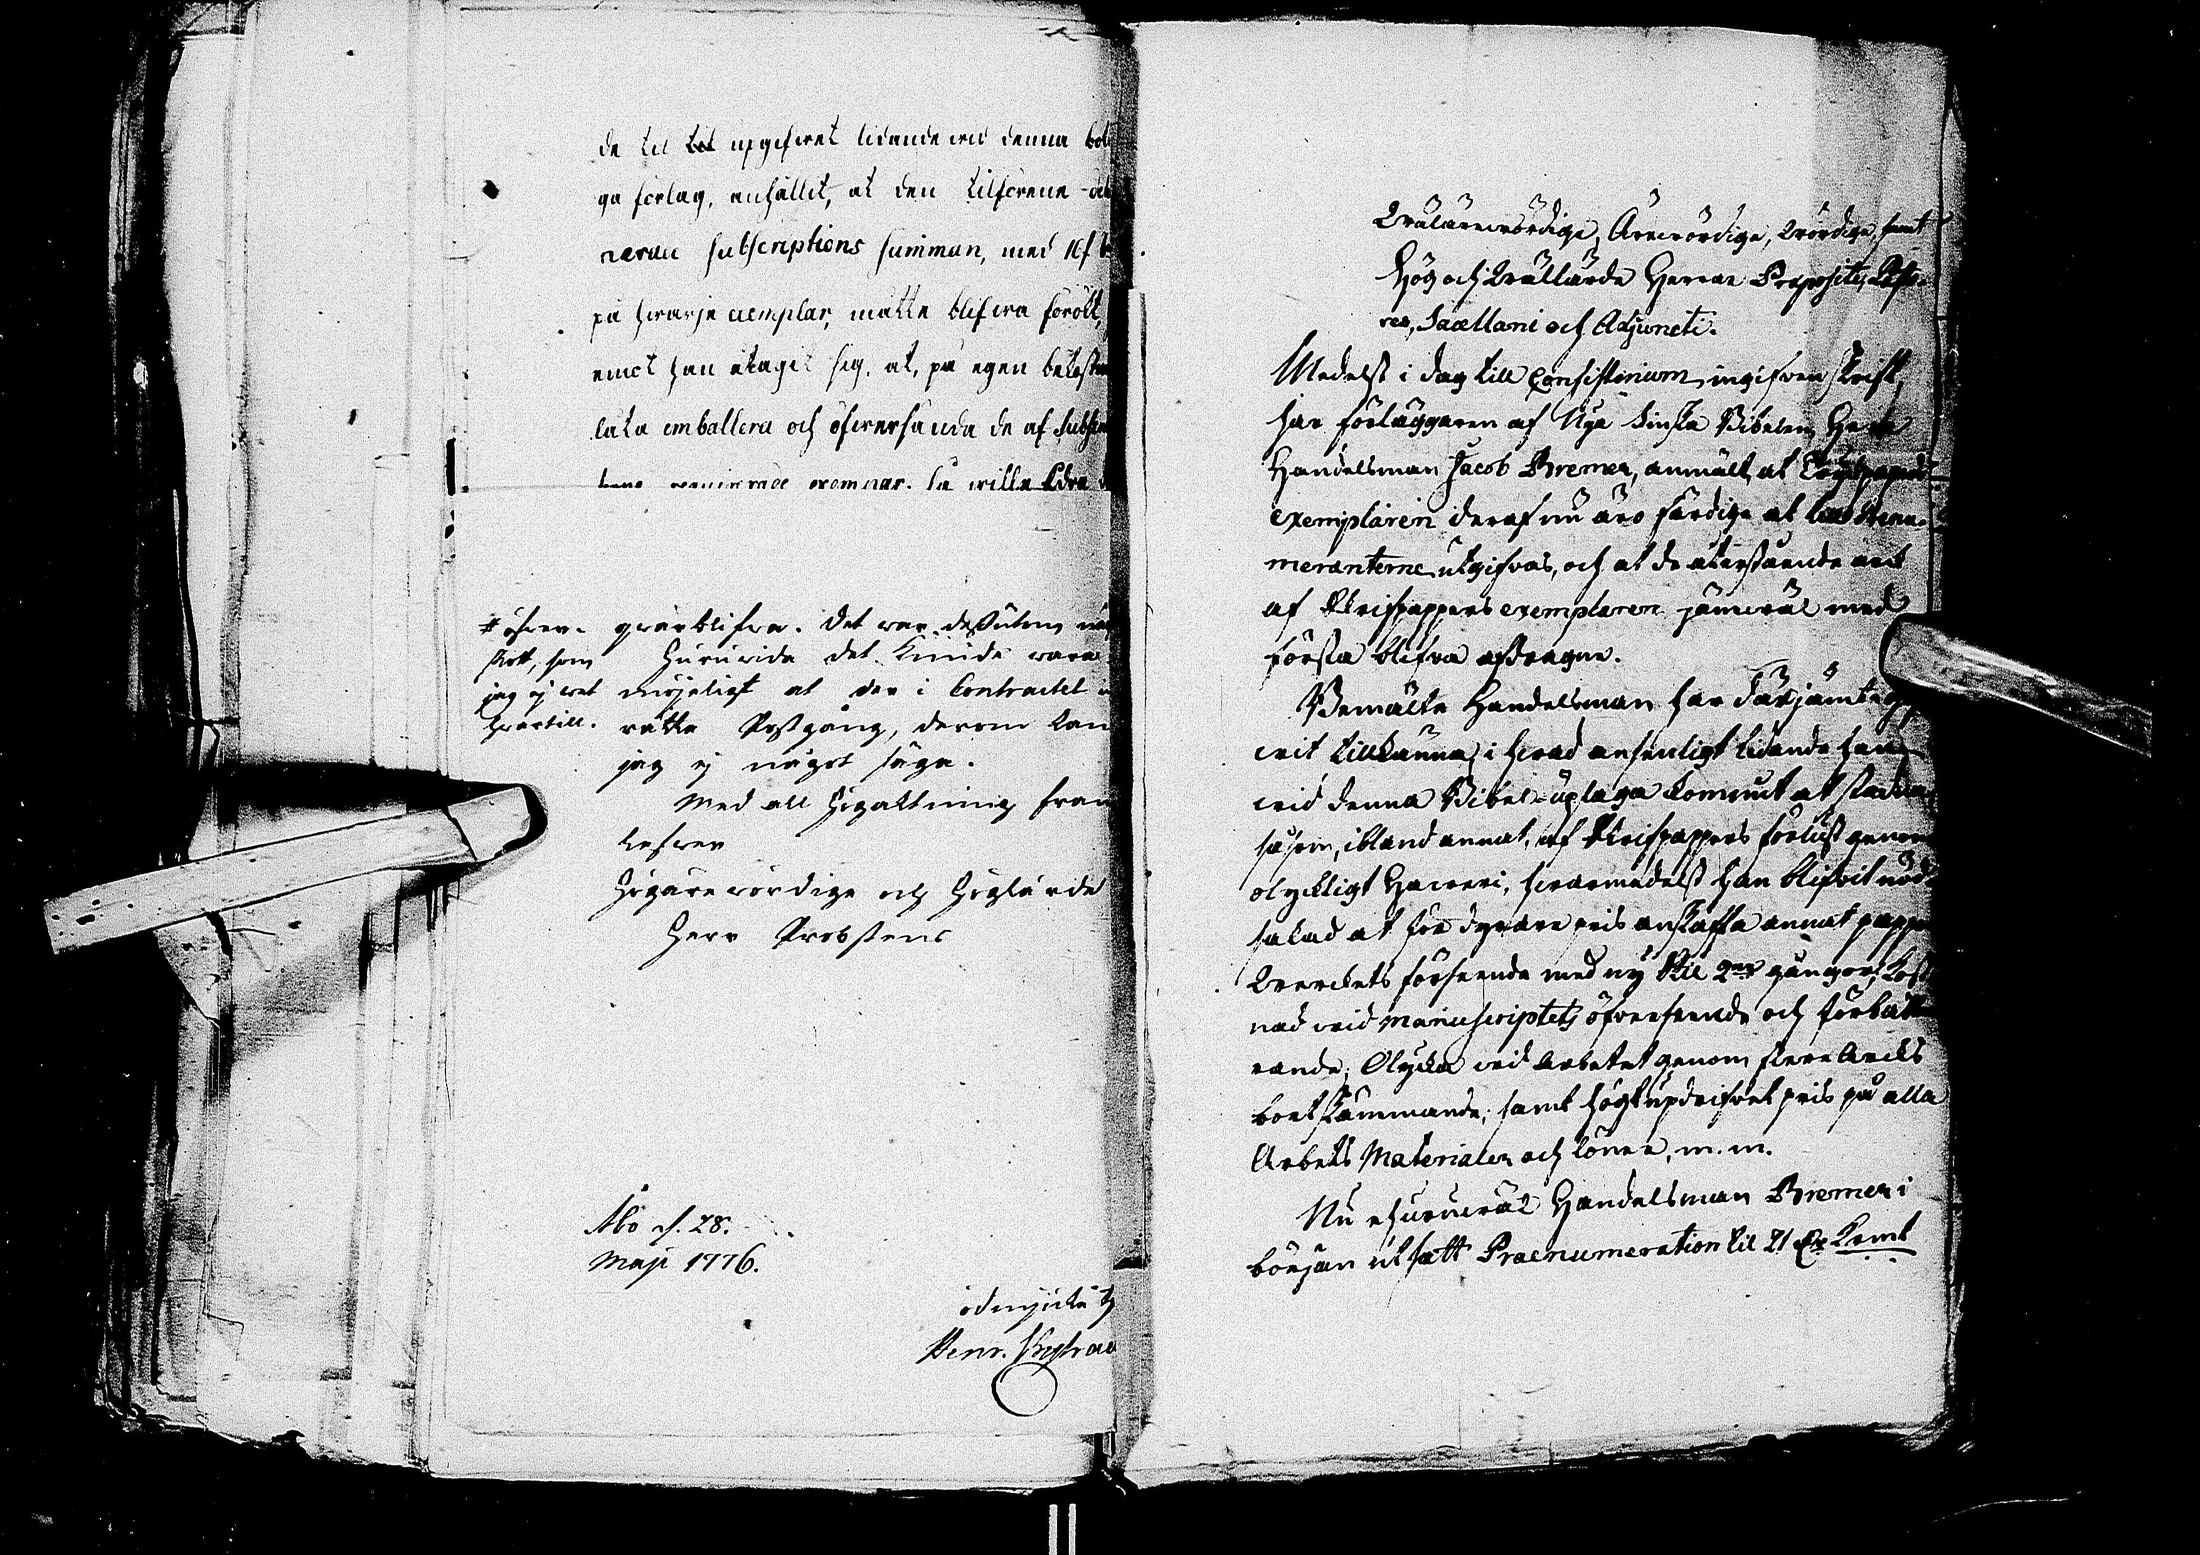 de til tet upgifwet lidande wid denna bok
ga förlag, anhållit, at den tilförene
nerade subscriptions summan, med 16 f
på hwarje exemplar, måtte blifwa förökt,
emot han åtagit sig, at, på egen bekostn
låta emballera och öfwersända de af Subscri
exemplar. Så wille Edra
# öfwer- qwarblifwa. Det war dessutom nå
skott, som huruwida det kunde wara
jag ej wet möjeligt at den i Contractet
hwartill. rätta Postgång, derom kan
jag ej något säga.
Med all högaktning fram
lefwer
Högärewördige och Höglärde
Herr Probstens
Åbo d. 28.
Maji 1776.
ödmjuke tj
Henr.
Wälärewördige, Ärewördige, Wördige, samt
Hög och Wällärde Herrar Præpositi, Pasto-
res, Sacellani och Adjuncti.
Medelst i dag till Consistorium ingifwen skrift,
har förläggaren af Nya Finska Bibelen, Herr
Handelsman Jacob Bremer, anmält, at Tryckpappers
exemplaren deraf nu äro färdige at till Prænu-
meranterne utgifwas, och at de återstående arck
af Skrifpappers exemplaren jämwäl med
första blifwa aftragne.
Bemälte Handelsman har därjämte
wit tillkänna, i hwad ansenligt lidande han
wid denna Bibel-uplaga kommit at stadna,
såsom, ibland annat, af Skrifpappers förlust genom
olyckligt Haweri, hwarmedelst han blifwit nöd-
sakad at för dyrare pris anskaffa annat papper
Werckets förseende med ny Stil 2ne gångor, Kost-
nad wid Manuscriptets öfwerseende och förbätt-
rande, Olycka wid Arbetet genom flere Arcks
bortskämmande, samt högt updrifwet pris på alla
Arbets Materialier och löner, m. m.
Nu ehuruwäl Handelsman Bremer i
början utsatt Prænumeration til 21 Dr Kpmt